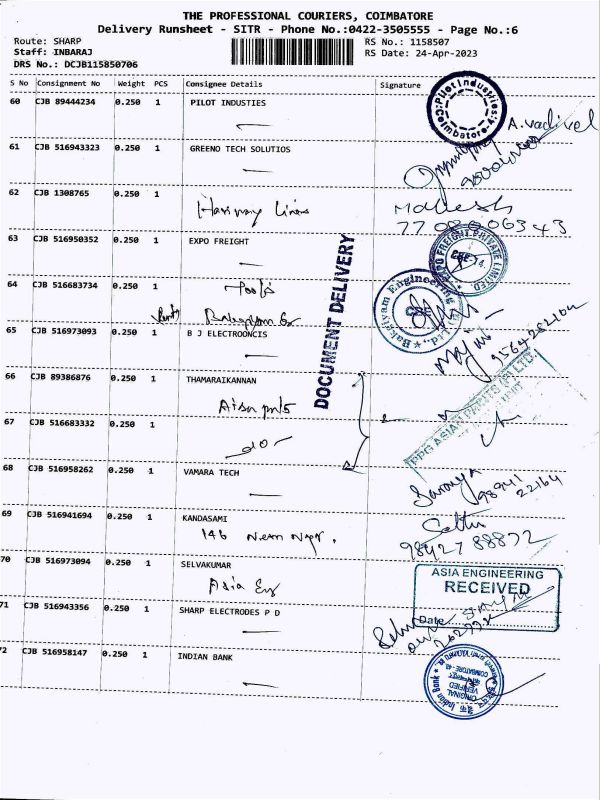 THE PROFESSIONAL COURIERS, COIMBATORE
Delivery Runsheet - SITR - Phone No.:0422-3505555 - Page No.:6
Route: SHARP RS No.: 1158507
Staff: INBARAJ RS Date: 24-Apr-2023
DRS No.: DCJB115850706
S No Consignment No Weight PCS Consignee Details Signature
60 CJB 89444234 0.250 1 PILOT INDUSTIES
Pilot Industries Coimbatore
A. vadivel
61 CJB 516943323 0.250 1 GREENO TECH SOLUTIOS
62 CJB 1308765 0.250 1
Mahesh
63 CJB 516950352 0.250 1 EXPO FREIGHT
EXPO FREIGHT PRIVATE LIMITED
CBE
64 CJB 516683734 0.250 1
Bakgiyam Engineering Ltd.
CBE
65 CJB 516973093 0.250 1 B J ELECTROONCIS
DOCUMENT DELIVERY
66 CJB 89386876 0.250 1 THAMARAIKANNAN
PPG ASIAN
67 CJB 516683332 0.250 1
do
68 CJB 516958262 0.250 1 VAMARA TECH
Saranya
98941
22164
69 CJB 516941694 0.250 1 KANDASAMI
146
98427 88872
70 CJB 516973094 0.250 1 SELVAKUMAR
Asia Eng
ASIA ENGINEERING
RECEIVED
Date
71 CJB 516943356 0.250 1 SHARP ELECTRODES P D
72 CJB 516958147 0.250 1 INDIAN BANK
Indian Bank
ORIGINAL
VERIFIED